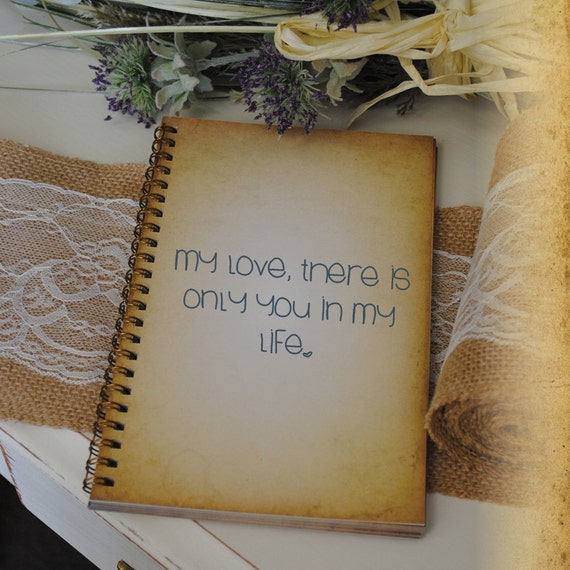 my love, there is
only you in my
life.